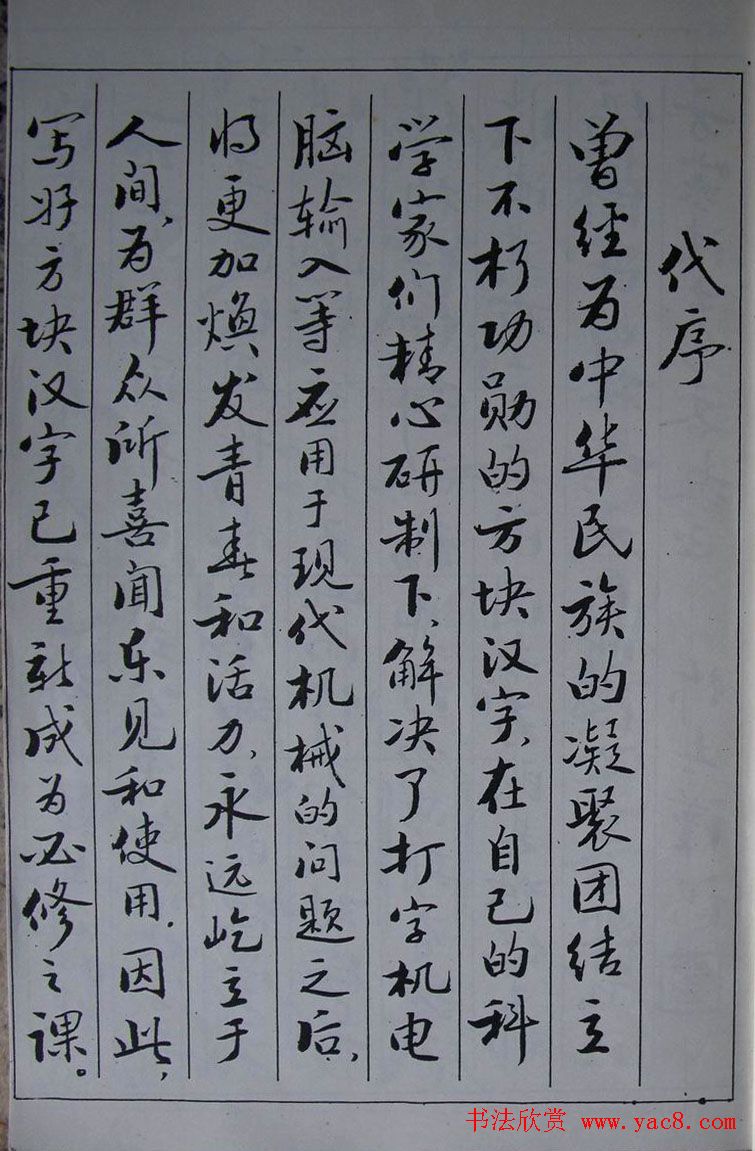 代序
曾经为中华民族的凝聚团结立
下不朽功勋的方块汉字,在自己的科
学家们精心研制下,解决了打字机电
脑输入等应用于现代机械的问题之后,
将更加焕发青春和活力,永远屹立于
人间,为群众所喜闻乐见和使用.因此,
写好方块汉字已重新成为必修之课。
书法欣赏 www.yac8.com